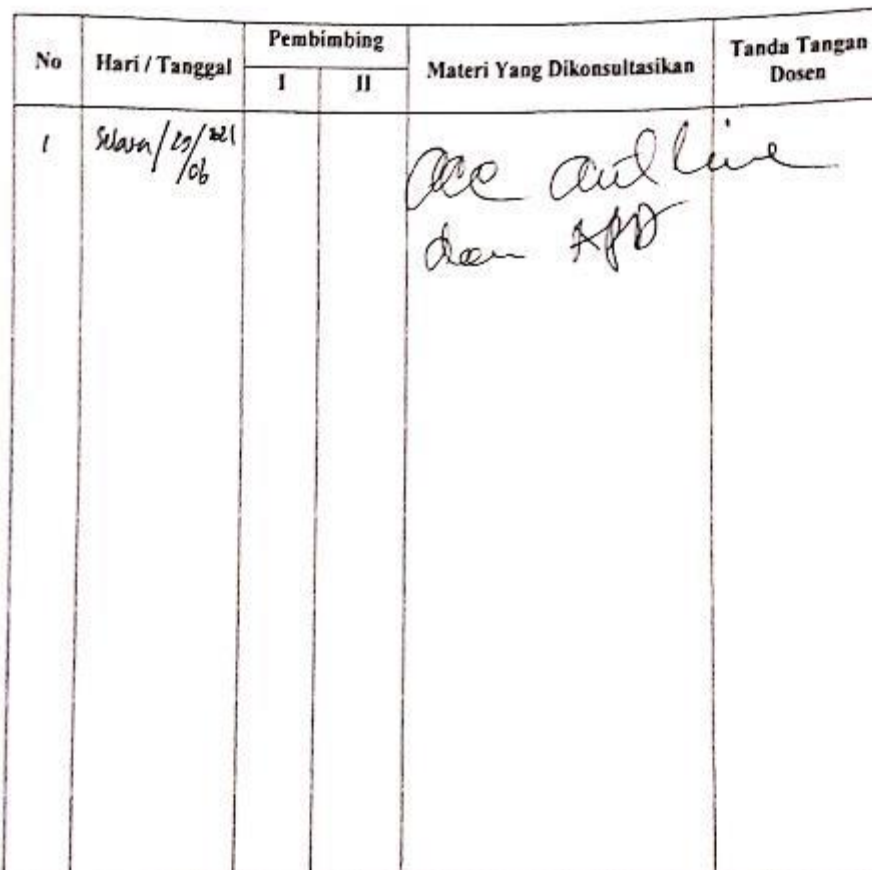 No Hari / Tanggal Pembimbing Materi Yang Dikonsultasikan Tanda Tangan
Dosen
I II
1 Selasa / 29/06 2021 acc outline
dan APD